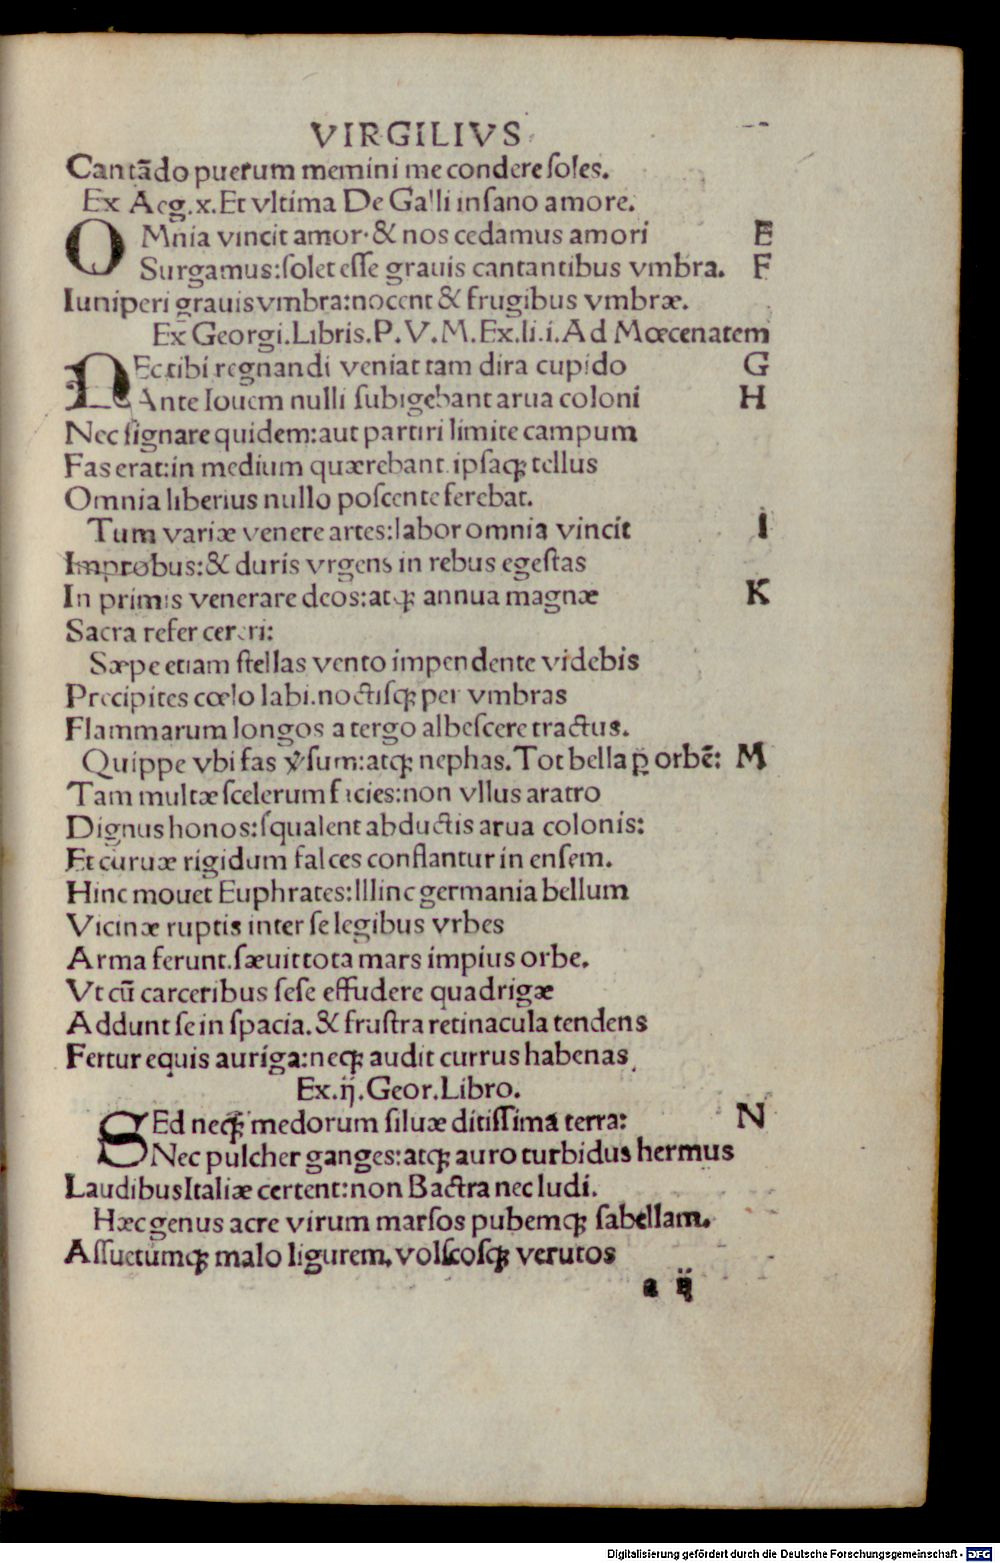 VIRGILIVS
Cantādo puerum memini me condere ſoles.
Ex Aeg.x.Et vltima De Galli inſano amore.
OMnia vincit amor·& nos cedamus amori E
Surgamus:ſolet eſſe grauis cantantibus vmbra. F
Iuniperi grauis vmbra:nocent & frugibus vmbræ.
Ex Georgi.Libris.P.V.M.Ex.li.i.Ad Mœcenatem
NEc tibi regnandi veniat tam dira cupido G
Ante Iouem nulli ſubigebant arua coloni H
Nec ſignare quidem:aut partiri limite campum
Fas erat:in medium quærebant ipſaqꝫ tellus
Omnia liberius nullo poſcente ferebat.
Tum variæ venere artes:labor omnia vincit I
Improbus:& duris vrgens in rebus egeſtas
In primis venerare deos:atqꝫ annua magnæ K
Sacra refer cereri:
Sæpe etiam ſtellas vento impendente videbis
Precipites cœlo labi.noctiſqꝫ per vmbras
Flammarum longos a tergo albeſcere tractus.
Quippe vbi fas v̓ſum:atqꝫ nephas.Tot bella ꝑ orbē: M
Tam multæ ſcelerum facies:non vllus aratro
Dignus honos:ſqualent abductis arua colonis:
Et curuæ rigidum falces conflantur in enſem.
Hinc mouet Euphrates:Illinc germania bellum
Vicinæ ruptis inter ſe legibus vrbes
Arma ferunt.ſæuit tota mars impius orbe.
Vt cū carceribus ſeſe effudere quadrigæ
Addunt ſe in ſpacia.& fruſtra retinacula tendens
Fertur equis auriga:neqꝫ audit currus habenas.
Ex.ij.Geor.Libro.
SEd neqꝫ medorum ſiluæ ditiſſima terra: N
Nec pulcher ganges:atqꝫ auro turbidus hermus
Laudibus Italiæ certent:non Bactra nec ludi.
Hæc genus acre virum marſos pubemqꝫ ſabellam.
Aſſuetumqꝫ malo ligurem.volſcoſqꝫ verutos
a ij
Digitalisierung gefördert durch die Deutsche Forschungsgemeinschaft - DFG